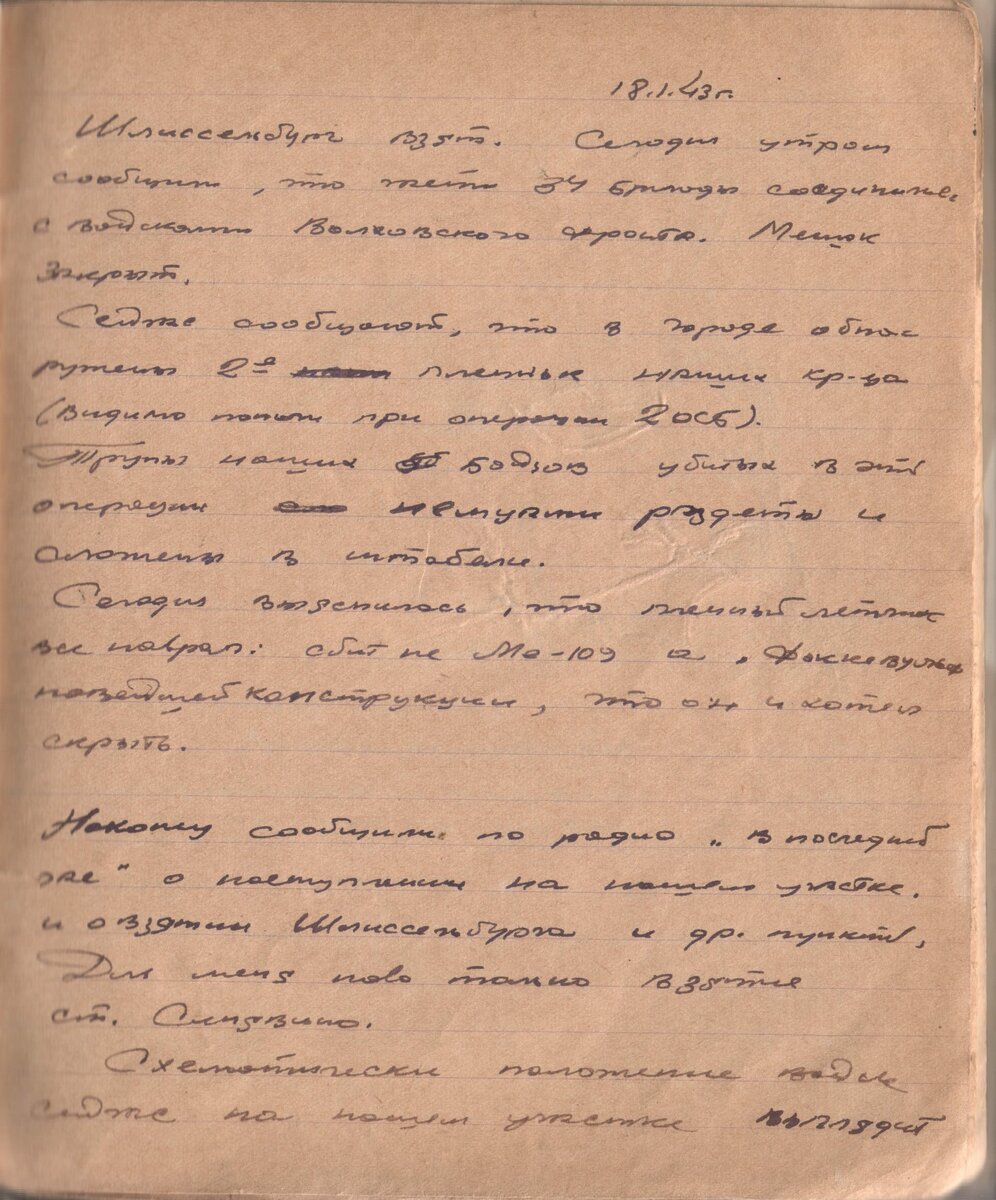 18.1.43 г.
Шлиссельбург взят. Сегодня утром
сообщили, что части 34 бригады соединились
с войсками Волховского фронта. Мешок
закрыт.
Сейчас сообщают, что в городе обна
ружены 2е пленных наших кр-ца
(видимо попали при операции 2 ОСБ).
Трупы наших бойцов убитых в этой
операции немцами раздеты и
сложены в штабели.
Сегодня выяснилось, что пленный летчик
все наврал: сбит не Ме-109 а „Фоккевульф
новейшей конструкции, что он и хотел
скрыть.
Наконец сообщили по радио „в последний
час" о наступлении на нашем участке.
и о взятии Шлиссельбурга и др. пунктов,
Для меня ново только взятие
ст. Синявино.
Схематически положение войск
сейчас на нашем участке выглядит